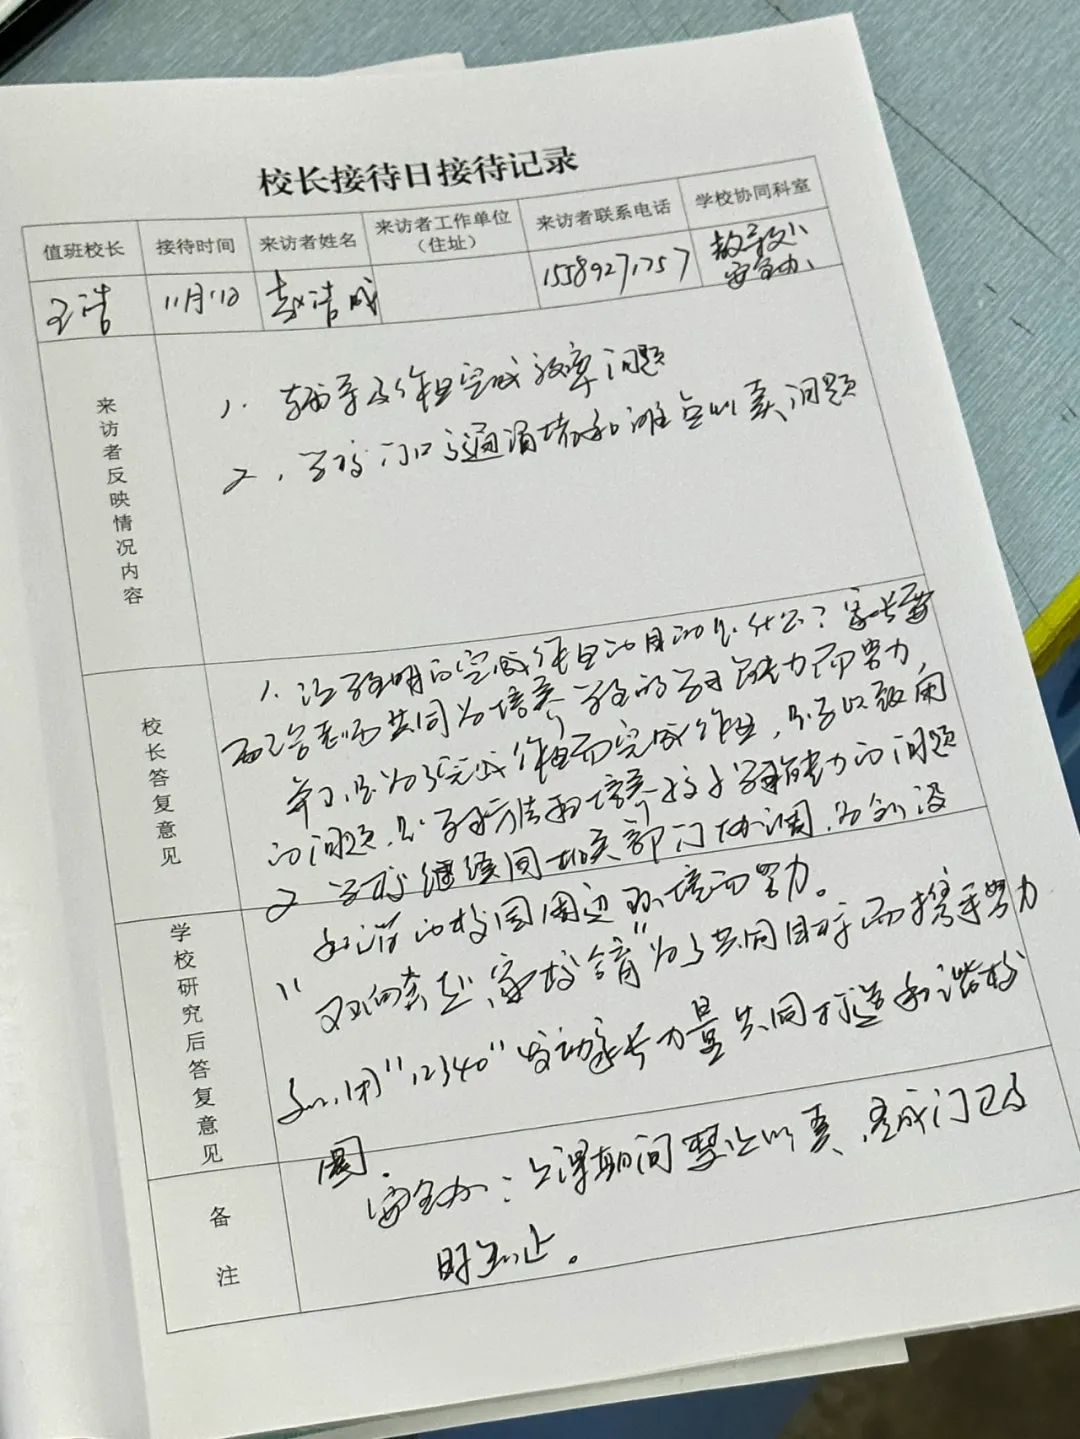 校长接待日接待记录
值班校长 接待时间 来访者姓名 来访者工作单位（住址） 来访者联系电话 学校协同科室
王浩 11月11日 赵浩成 15589271757 教导处 安全办
来访者反映情况内容
1. 辅导及作业完成效率问题
2. 学校门口交通拥堵和摊点叫卖问题
校长答复意见
1. 让孩子明白完成作业的目的是什么？家长要
配合老师共同为培养学生的学习能力而努力，
单了是为了完成作业而完成作业，是学以致用
的问题，是学习方法和培养孩子学习能力的问题
2 学校继续同相关部门协调，为创设
和谐的校园周边环境而努力。
学校研究后答复意见
"双向奔赴 家校合育"为了共同目标而携手努力
利用"12340"发动家长力量共同打造和谐校
园.
备注
安全办：上课期间禁止叫卖，
时制止。